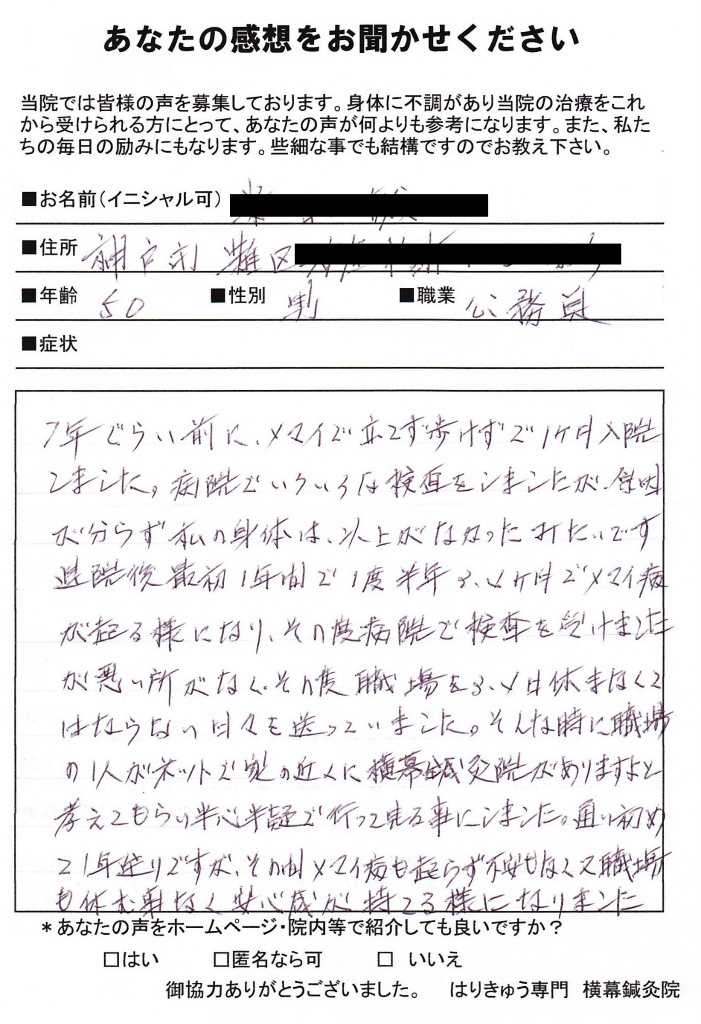 あなたの感想をお聞かせください
当院では皆様の声を募集しております。身体に不調があり当院の治療をこれ
から受けられる方にとって、あなたの声が何よりも参考になります。また、私た
ちの毎日の励みにもなります。些細な事でも結構ですのでお教え下さい。
■お名前（イニシャル可）
■住所 神戸市灘区
■年齢 50 ■性別 男 ■職業 公務員
■症状
7年ぐらい前に、メマイで立てず歩けずで1ヶ月入院
しました。病院でいろいろな検査をしましたが、原因
が分らず私の身体は、以上がなかったみたいです
退院後最初1年間で1度半年3、4ヶ月でメマイ病
が起る様になり、その度病院で検査を受けました
が悪い所がなく、その度職場を3、4日休まなくて
はならない日々を送っていました。そんな時に職場
の1人がネットで家の近くに横幕鍼灸院がありますよと
考えてもらい半心半疑で行って見る事にしました。通い初め
て1年近りですが、その間メマイ病も起らず不安もなく又職場
も休む事なく安心感が持てる様になりました
＊あなたの声をホームページ・院内等で紹介しても良いですか？
□はい □匿名なら可 □ いいえ
御協力ありがとうございました。 はりきゅう専門 横幕鍼灸院